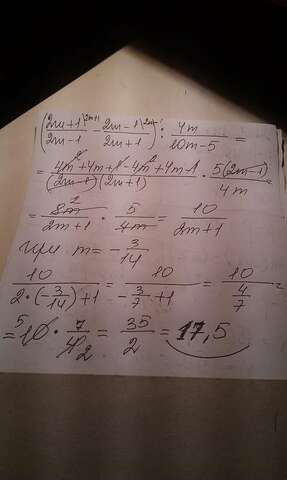 (2m+1\2m+1 / 2m-1 - 2m-1\2m-1 / 2m+1) : 4m / 10m-5 =
= 4m²+4m+1-4m²+4m-1 / (2m-1)(2m+1) · 5(2m-1) / 4m
= 8m² / 2m+1 · 5 / 4m = 10 / 2m+1
при m = - 3/14
10 / 2·(-3/14)+1 = 10 / -3/7+1 = 10 / 4/7 =
= ⁵10 · 7 / 4₂ = 35/2 = 17,5